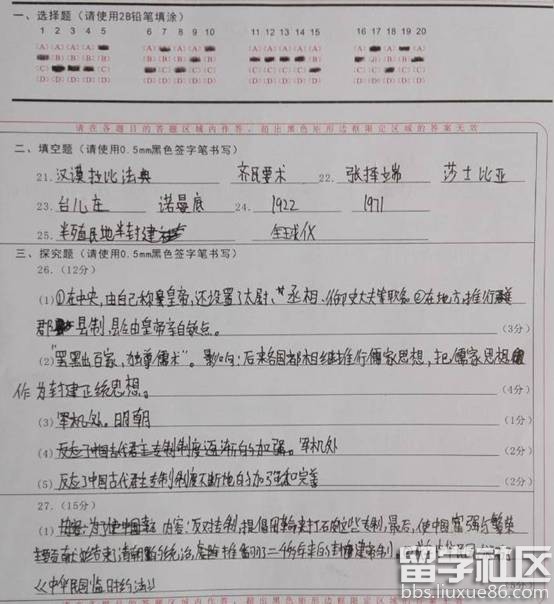 一、选择题（请使用2B铅笔填涂）
1 2 3 4 5 6 7 8 9 10 11 12 13 14 15 16 17 18 19 20
请在各题目的答题区域内作答，超出黑色矩形边框限定区域的答案无效
二、填空题（请使用0.5mm黑色签字笔书写）
21. 汉谟拉比法典 齐民要术 22. 张择端 莎士比亚
23. 台儿庄 诺曼底 24. 1922 1971
25. 半殖民地半封建 全球化
三、探究题（请使用0.5mm黑色签字笔书写）
26.（12分）
(1)①在中央，由自己称皇帝，还设置了太尉、丞相、御史大夫等职务②在地方推行
郡县制，县令由皇帝亲自 （3分）
(2)"罢黜百家，独尊儒术"。影响：后来各国都相继推行儒家思想，把儒家思想
作为封建正统思想。 （4分）
(3) 军机处。明朝 （1分）
(4) 反应了中国古代君主专制制度逐渐的加强。军机处 （2分）
(5) 反应了中国古代君主专制制度不断地的加强和完善 （2分）
27.（15分）
(1) 内容：反对专制，提倡 最后，使中国富强与繁荣
结束了清朝的统治， 推翻了二千多年来的封建帝制。
《中华民国临时约法》
留学社区
bbs.liuxue86.com